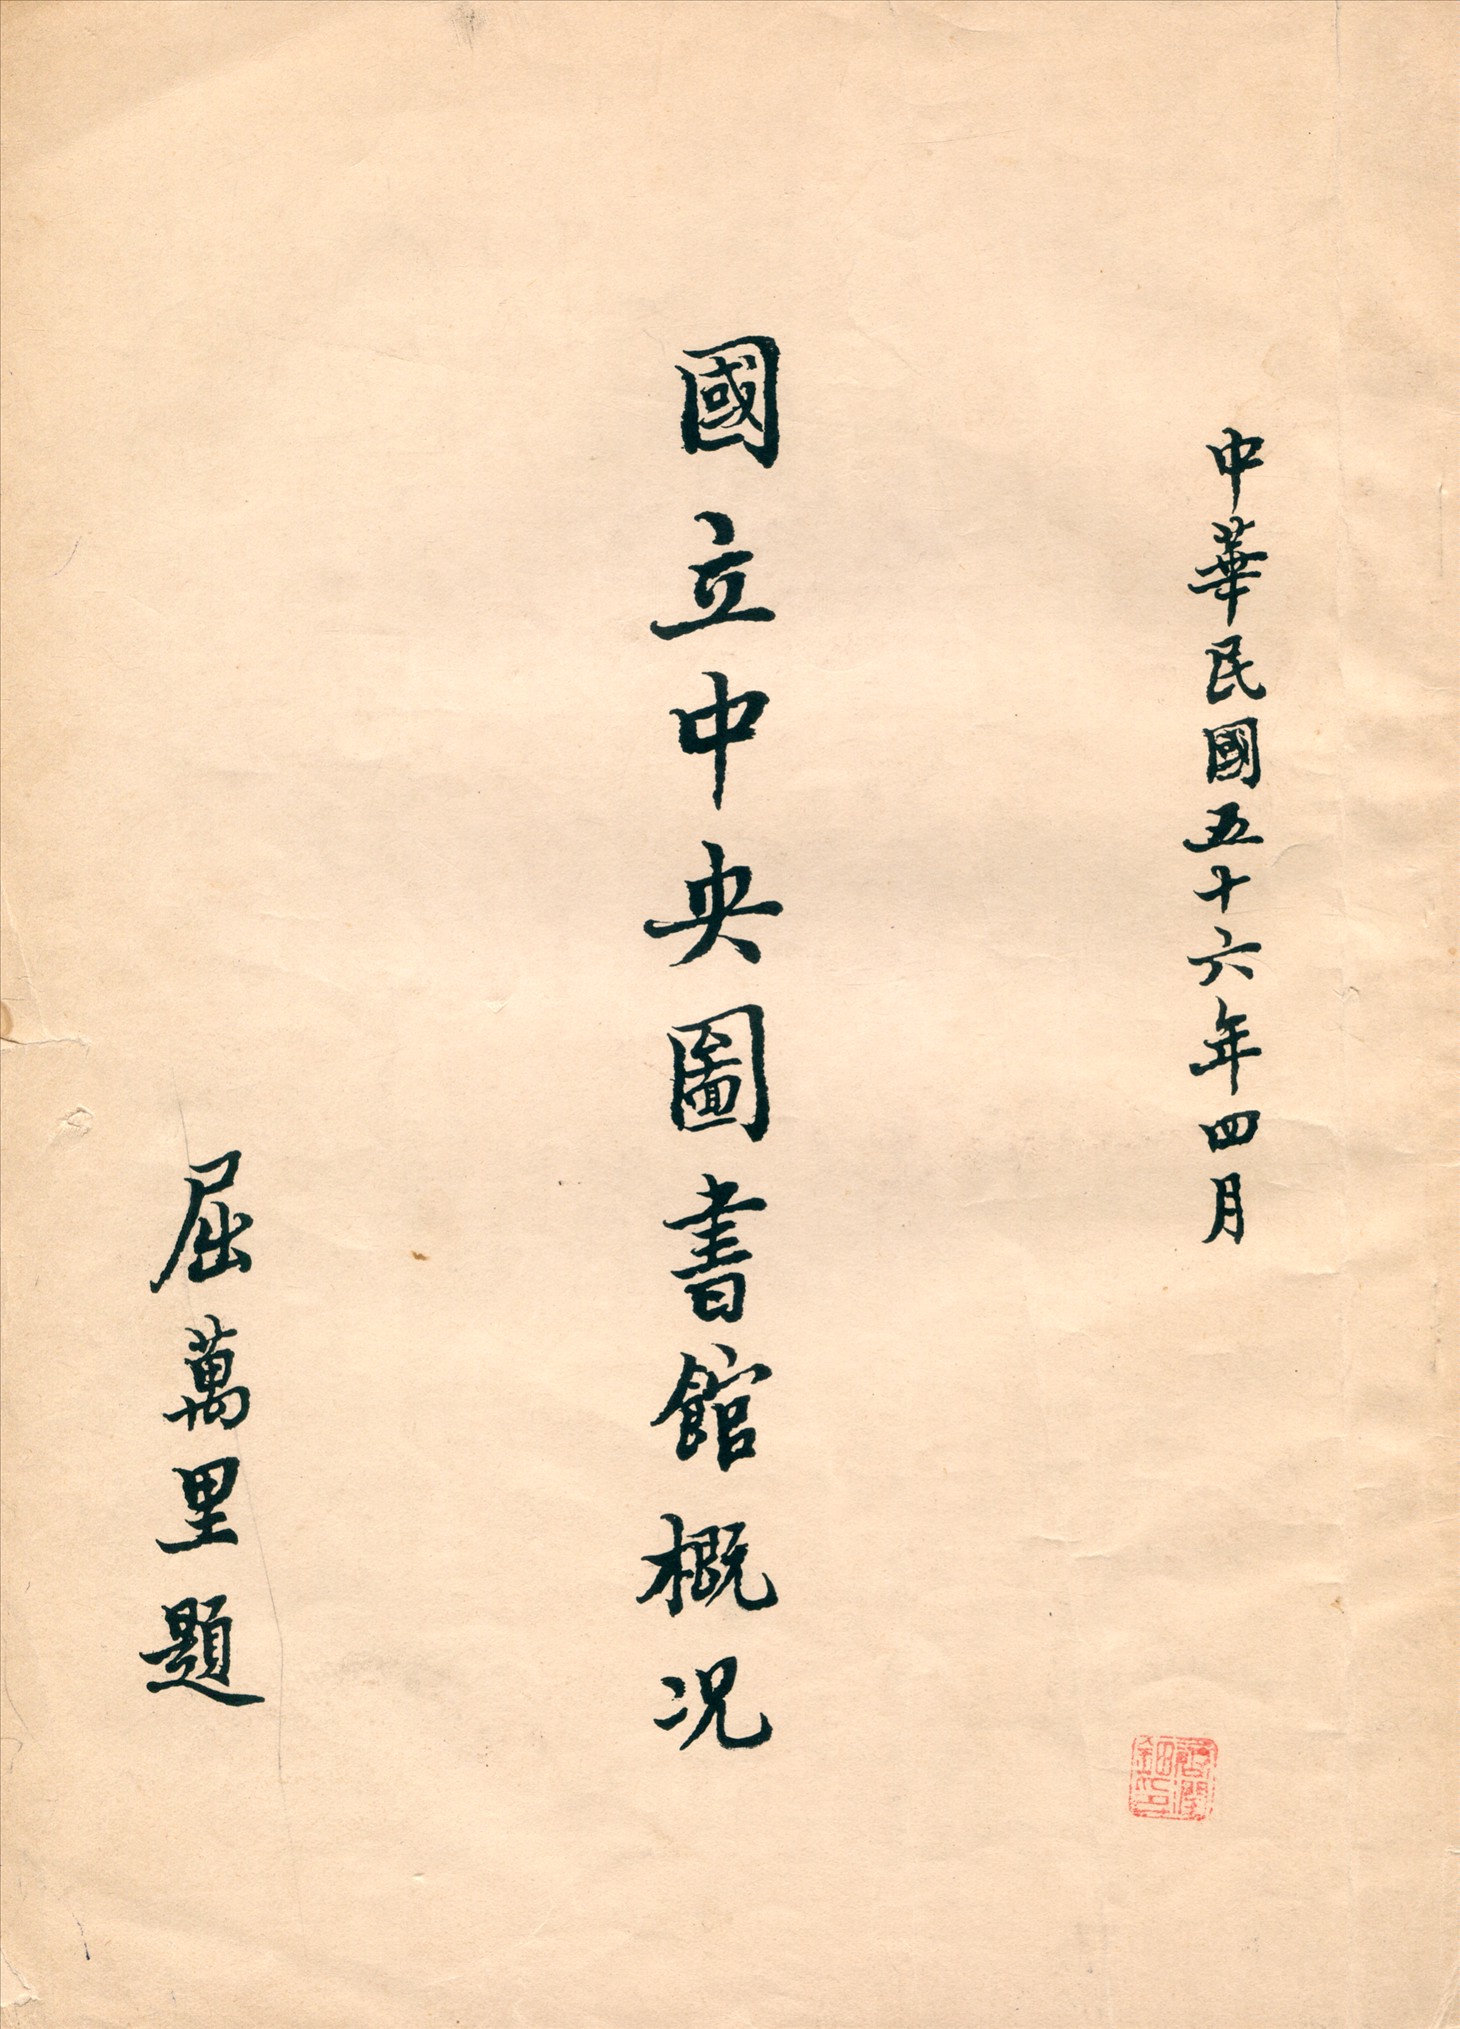 中華民國五十六年四月
國立中央圖書館概况
屈萬里題